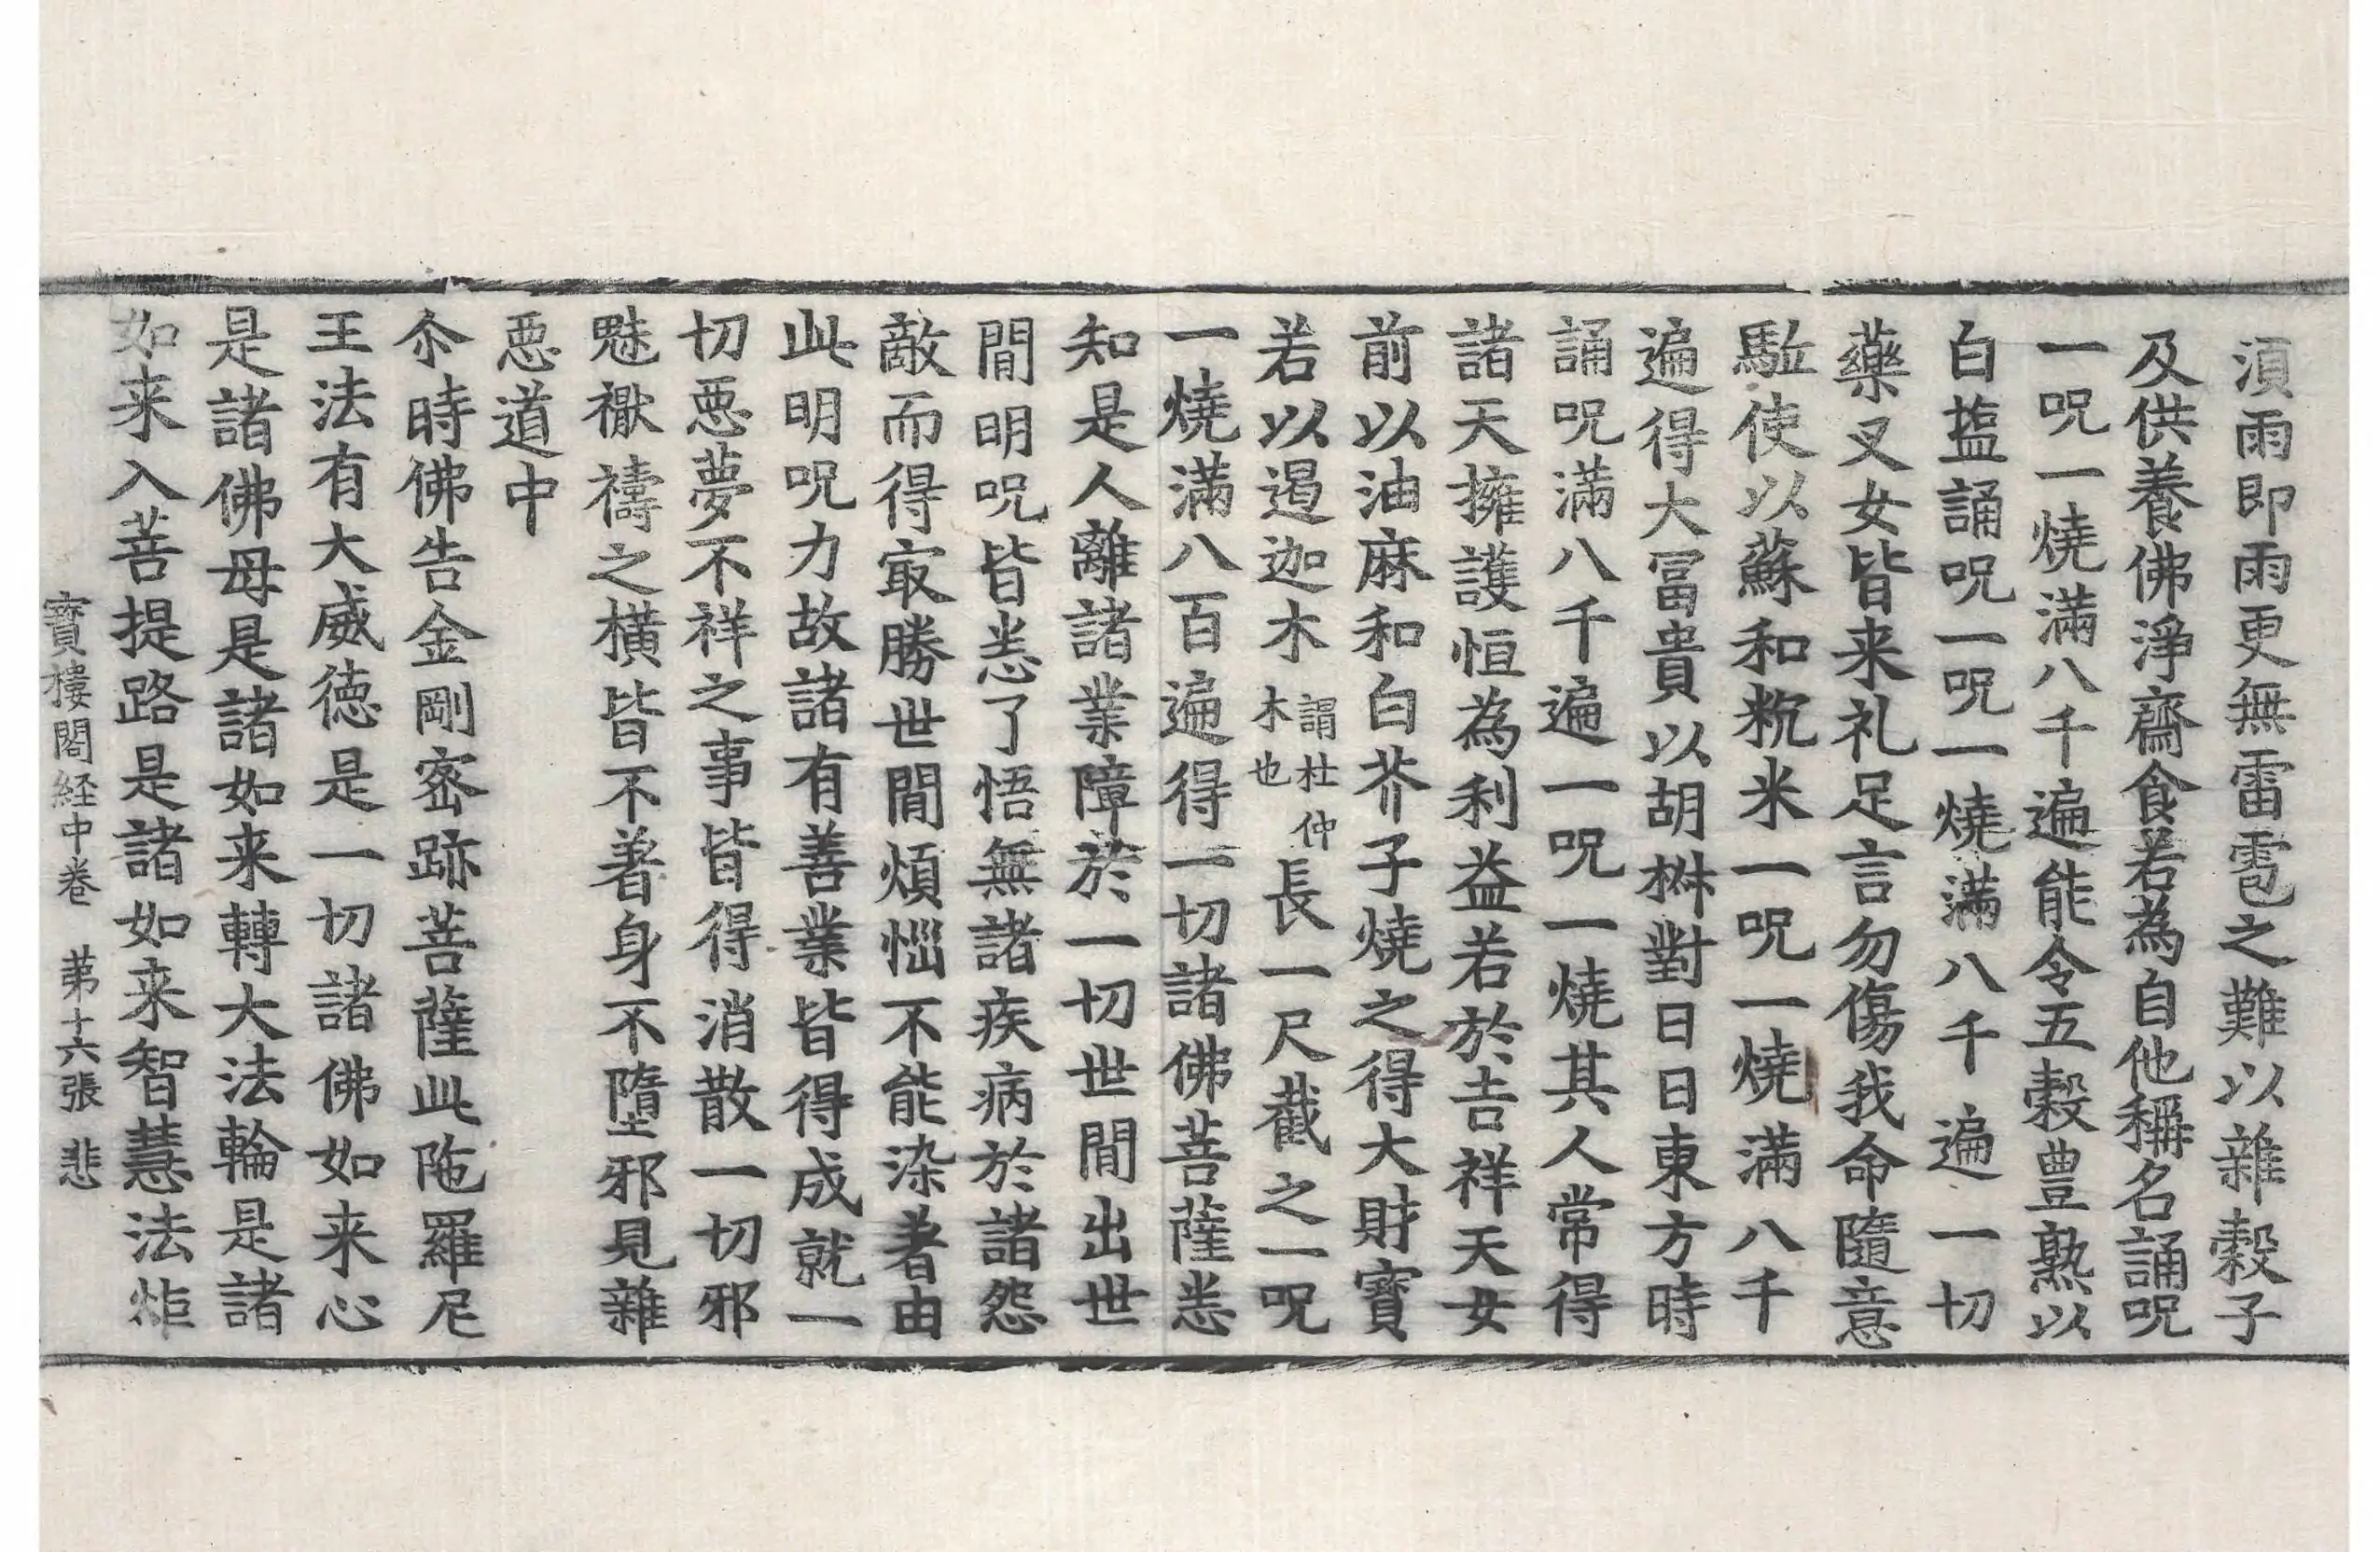 湏雨即雨更無雷雹之難以雜穀子
及供養佛淨齋食若為自他稱名誦呪
一呪一燒滿八千遍能令五穀豊熟以
白塩誦呪一呪一燒滿八千遍一切
藥叉女皆来礼足言勿傷我命隨意
駈使以蘇和粇米一呪一燒滿八千
遍得大冨貴以胡椒對日日東方時
誦呪滿八千遍一呪一燒其人常得
諸天擁護恒為利益若於吉祥天女
前以油麻和白芥子燒之得大財寶
若以遏迦木謂杜仲木也長一尺截之一呪
一燒滿八百遍得一切諸佛菩薩悉
知是人離諸業障於一切世間出世
間明呪皆悉了悟無諸疾病於諸怨
敵而得冣勝世間煩惱不能染著由
此明呪力故諸有善業皆得成就一
切惡夢不祥之事皆得消散一切邪
魅禩禱之橫皆不著身不墮邪見雜
惡道中
尒時佛告金剛密跡菩薩此陁羅尼
王法有大威德是一切諸佛如来心
是諸佛母是諸如来轉大法輪是諸
如来入菩提路是諸如来智慧法炬
寶樓閣経中卷 苐十六張 悲